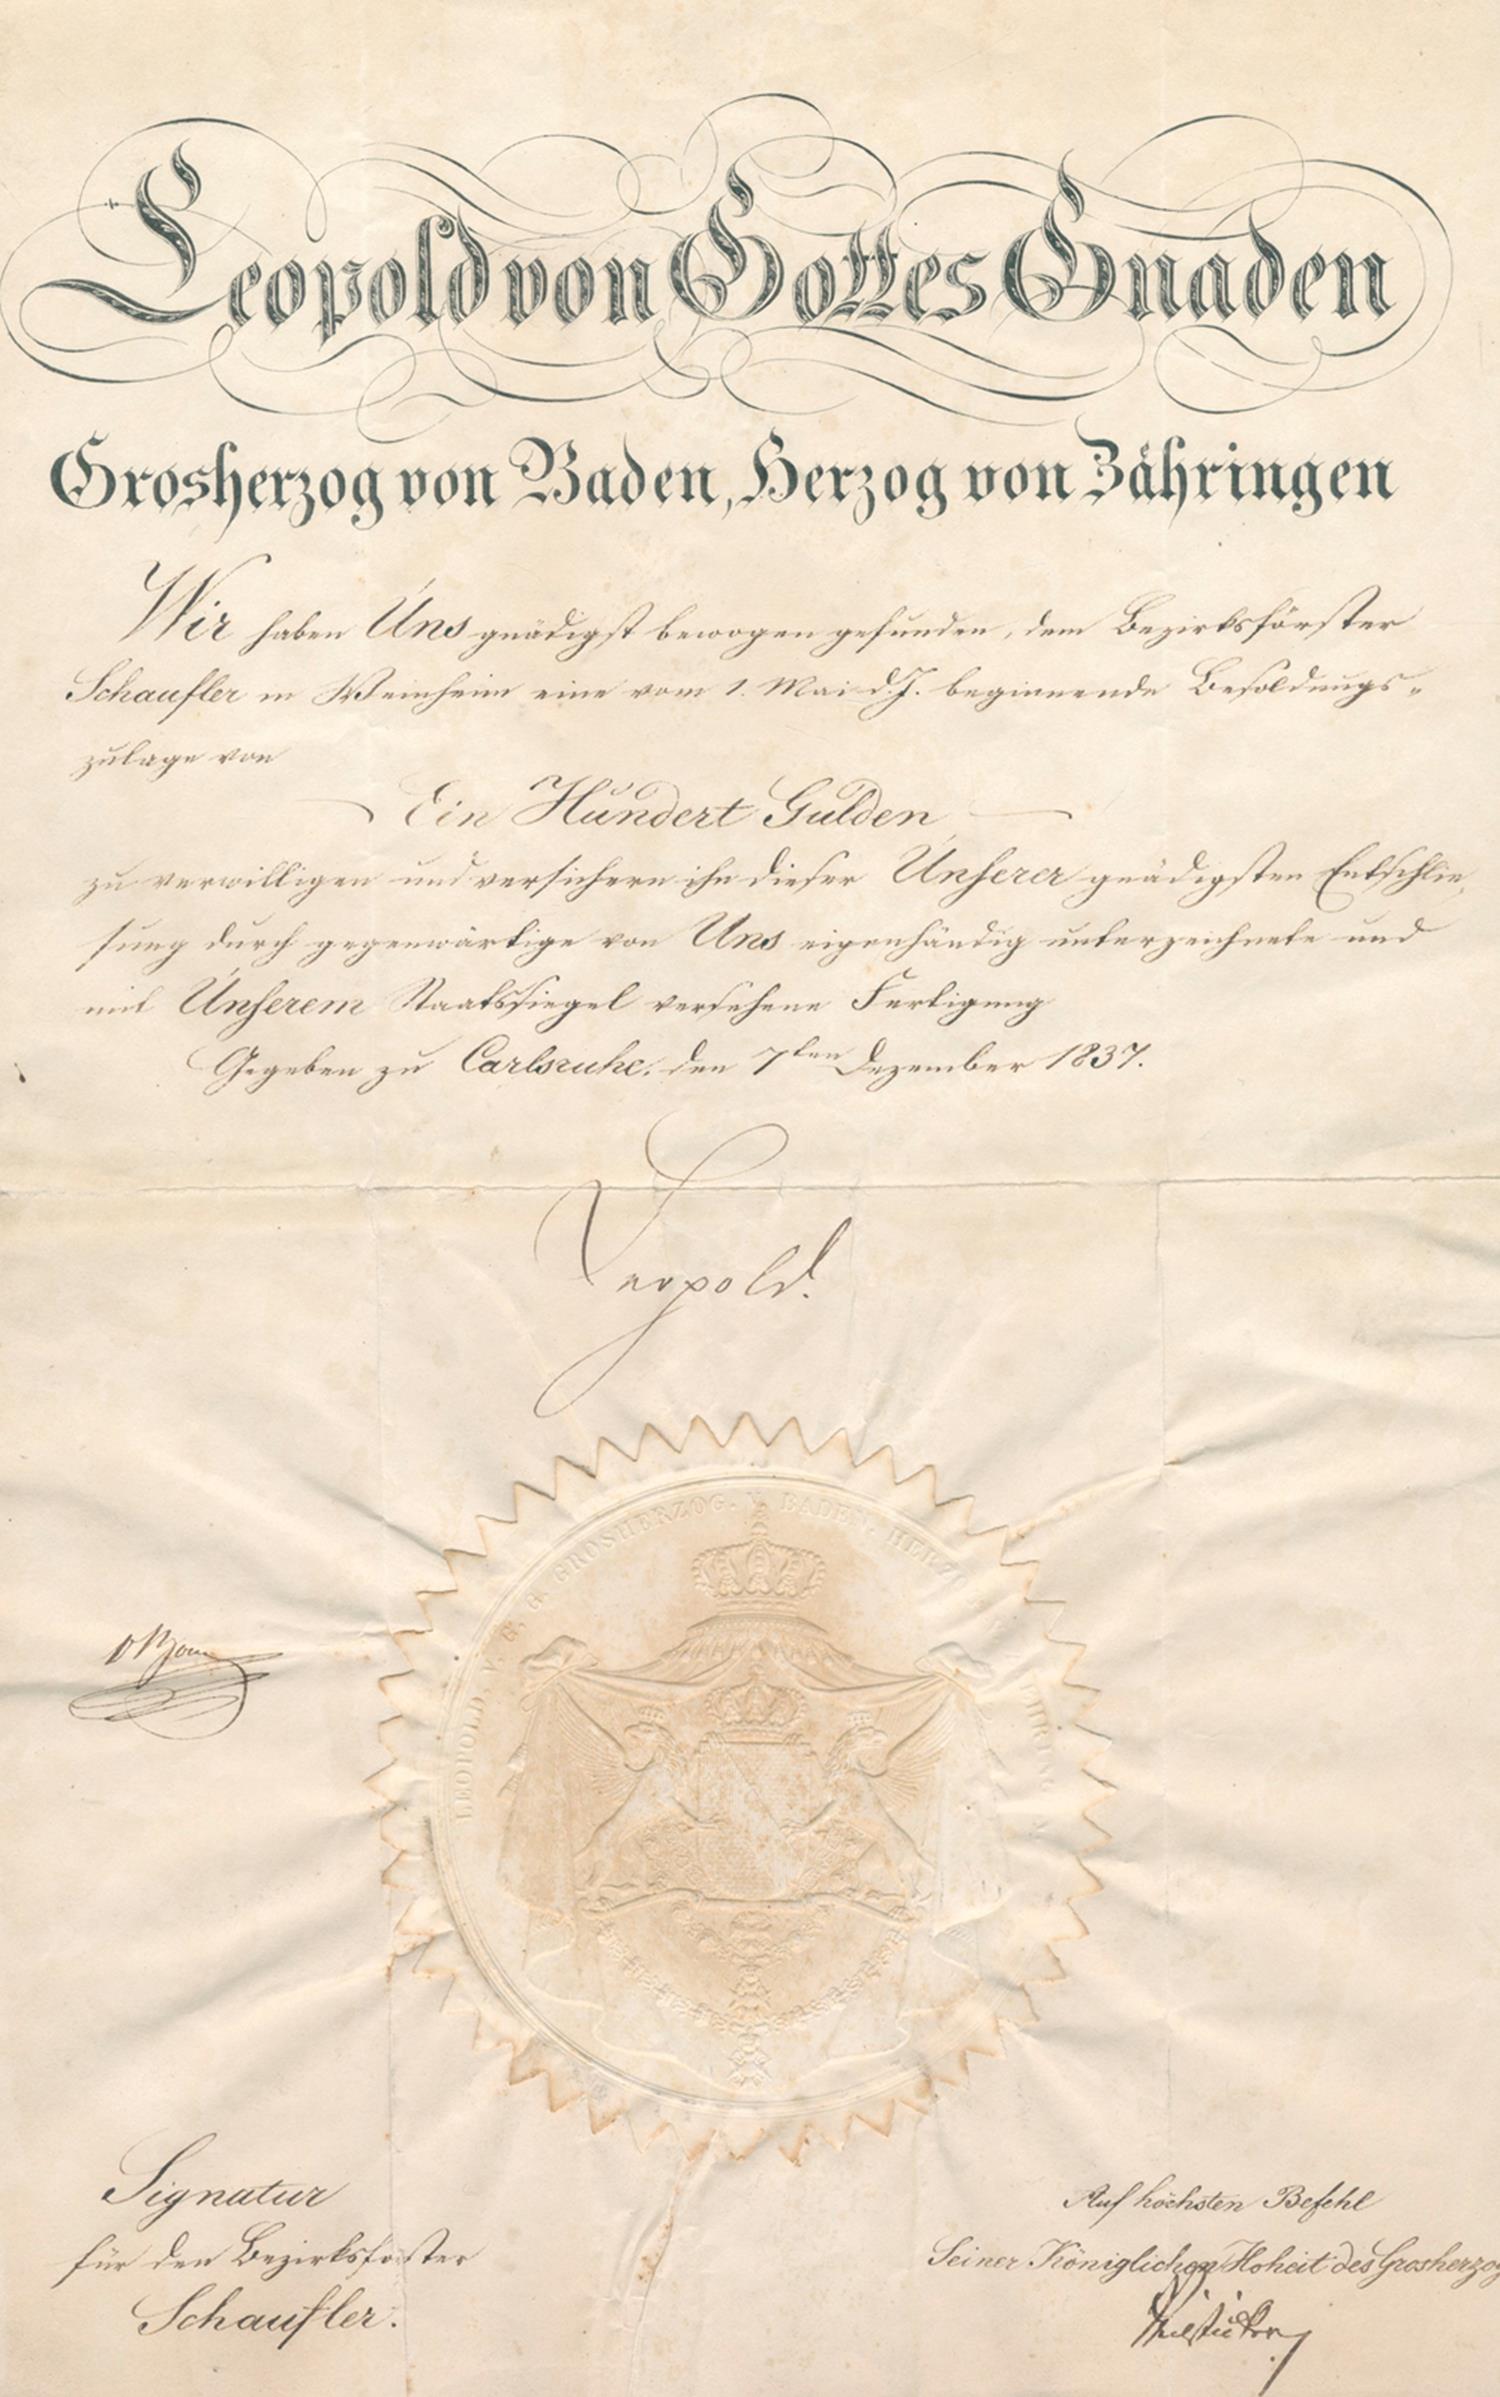 Leopold von Gottes Gnaden
Grosherzog von Baden, Herzog von Zähringen
Wir haben Uns gnädigst bewogen gefunden, dem Bezirksförster
Schaufler in Weinheim eine vom 1. Mai d. J. beginnende Besoldungs-
zulage von
Ein Hundert Gulden
zu verwilligen und versichern ihn dieser Unserer gnädigsten Entschlie-
sung durch gegenwärtige von Uns eigenhändig unterzeichnete und
mit Unserem Staatssiegel versehene Fertigung
Gegeben zu Carlsruhe, den 7ten Dezember 1837.
Leopold.
LEOPOLD. V. G. G. GROSHERZOG. V. BADEN. HERZ
Signatur
für den Bezirksförster
Schaufler.
Auf höchsten Befehl
Seiner Königlichen Hoheit des Grosherzog